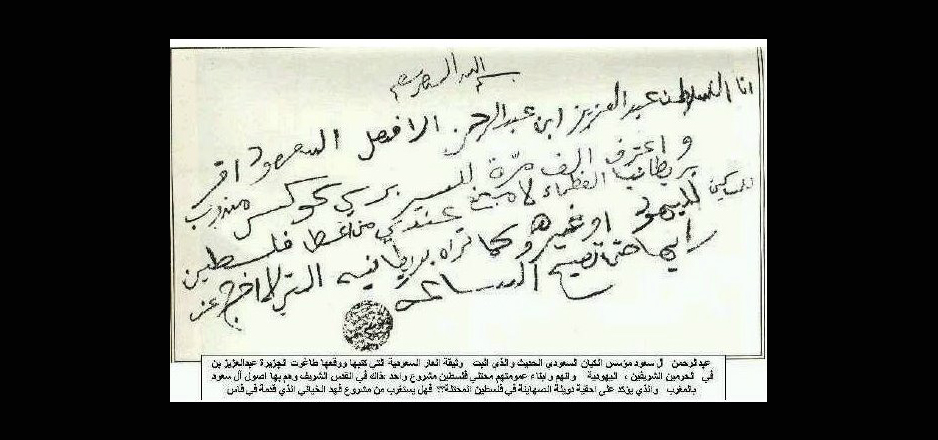 انا السلطان عبد العزيز ابن عبد الرحمن الافيصل السعود اقر
و اعترف الف مرّة للسير برسي كوكس مندوب
بريطانيا العظماء لا مانع عندي من اعطا فلسطين
للمساكين لليهود او غيرهم وكما تراه بريطانيه التي لا اخرج عن
رايها حتى تصيح الساعه
وثيقة العار السعودية التي كتبها ووقعها طاغوت الجزيرة عبدالعزيز بن عبدالرحمن آل سعود مؤسس الكيان السعودي الحديث والذي اثبت
بها اصول آل سعود اليهودية وانهم وابناء عمومتهم محتلي فلسطين مشروع واحد ،ذاك في القدس الشريف وهم في الحرمين الشريفين ،
فهل يستغرب من مشروع فهد الخياني الذي قدمة في فاس بالمغرب والذي يؤكد على احقية دويلة الصهاينة في فلسطين المحتلة؟؟